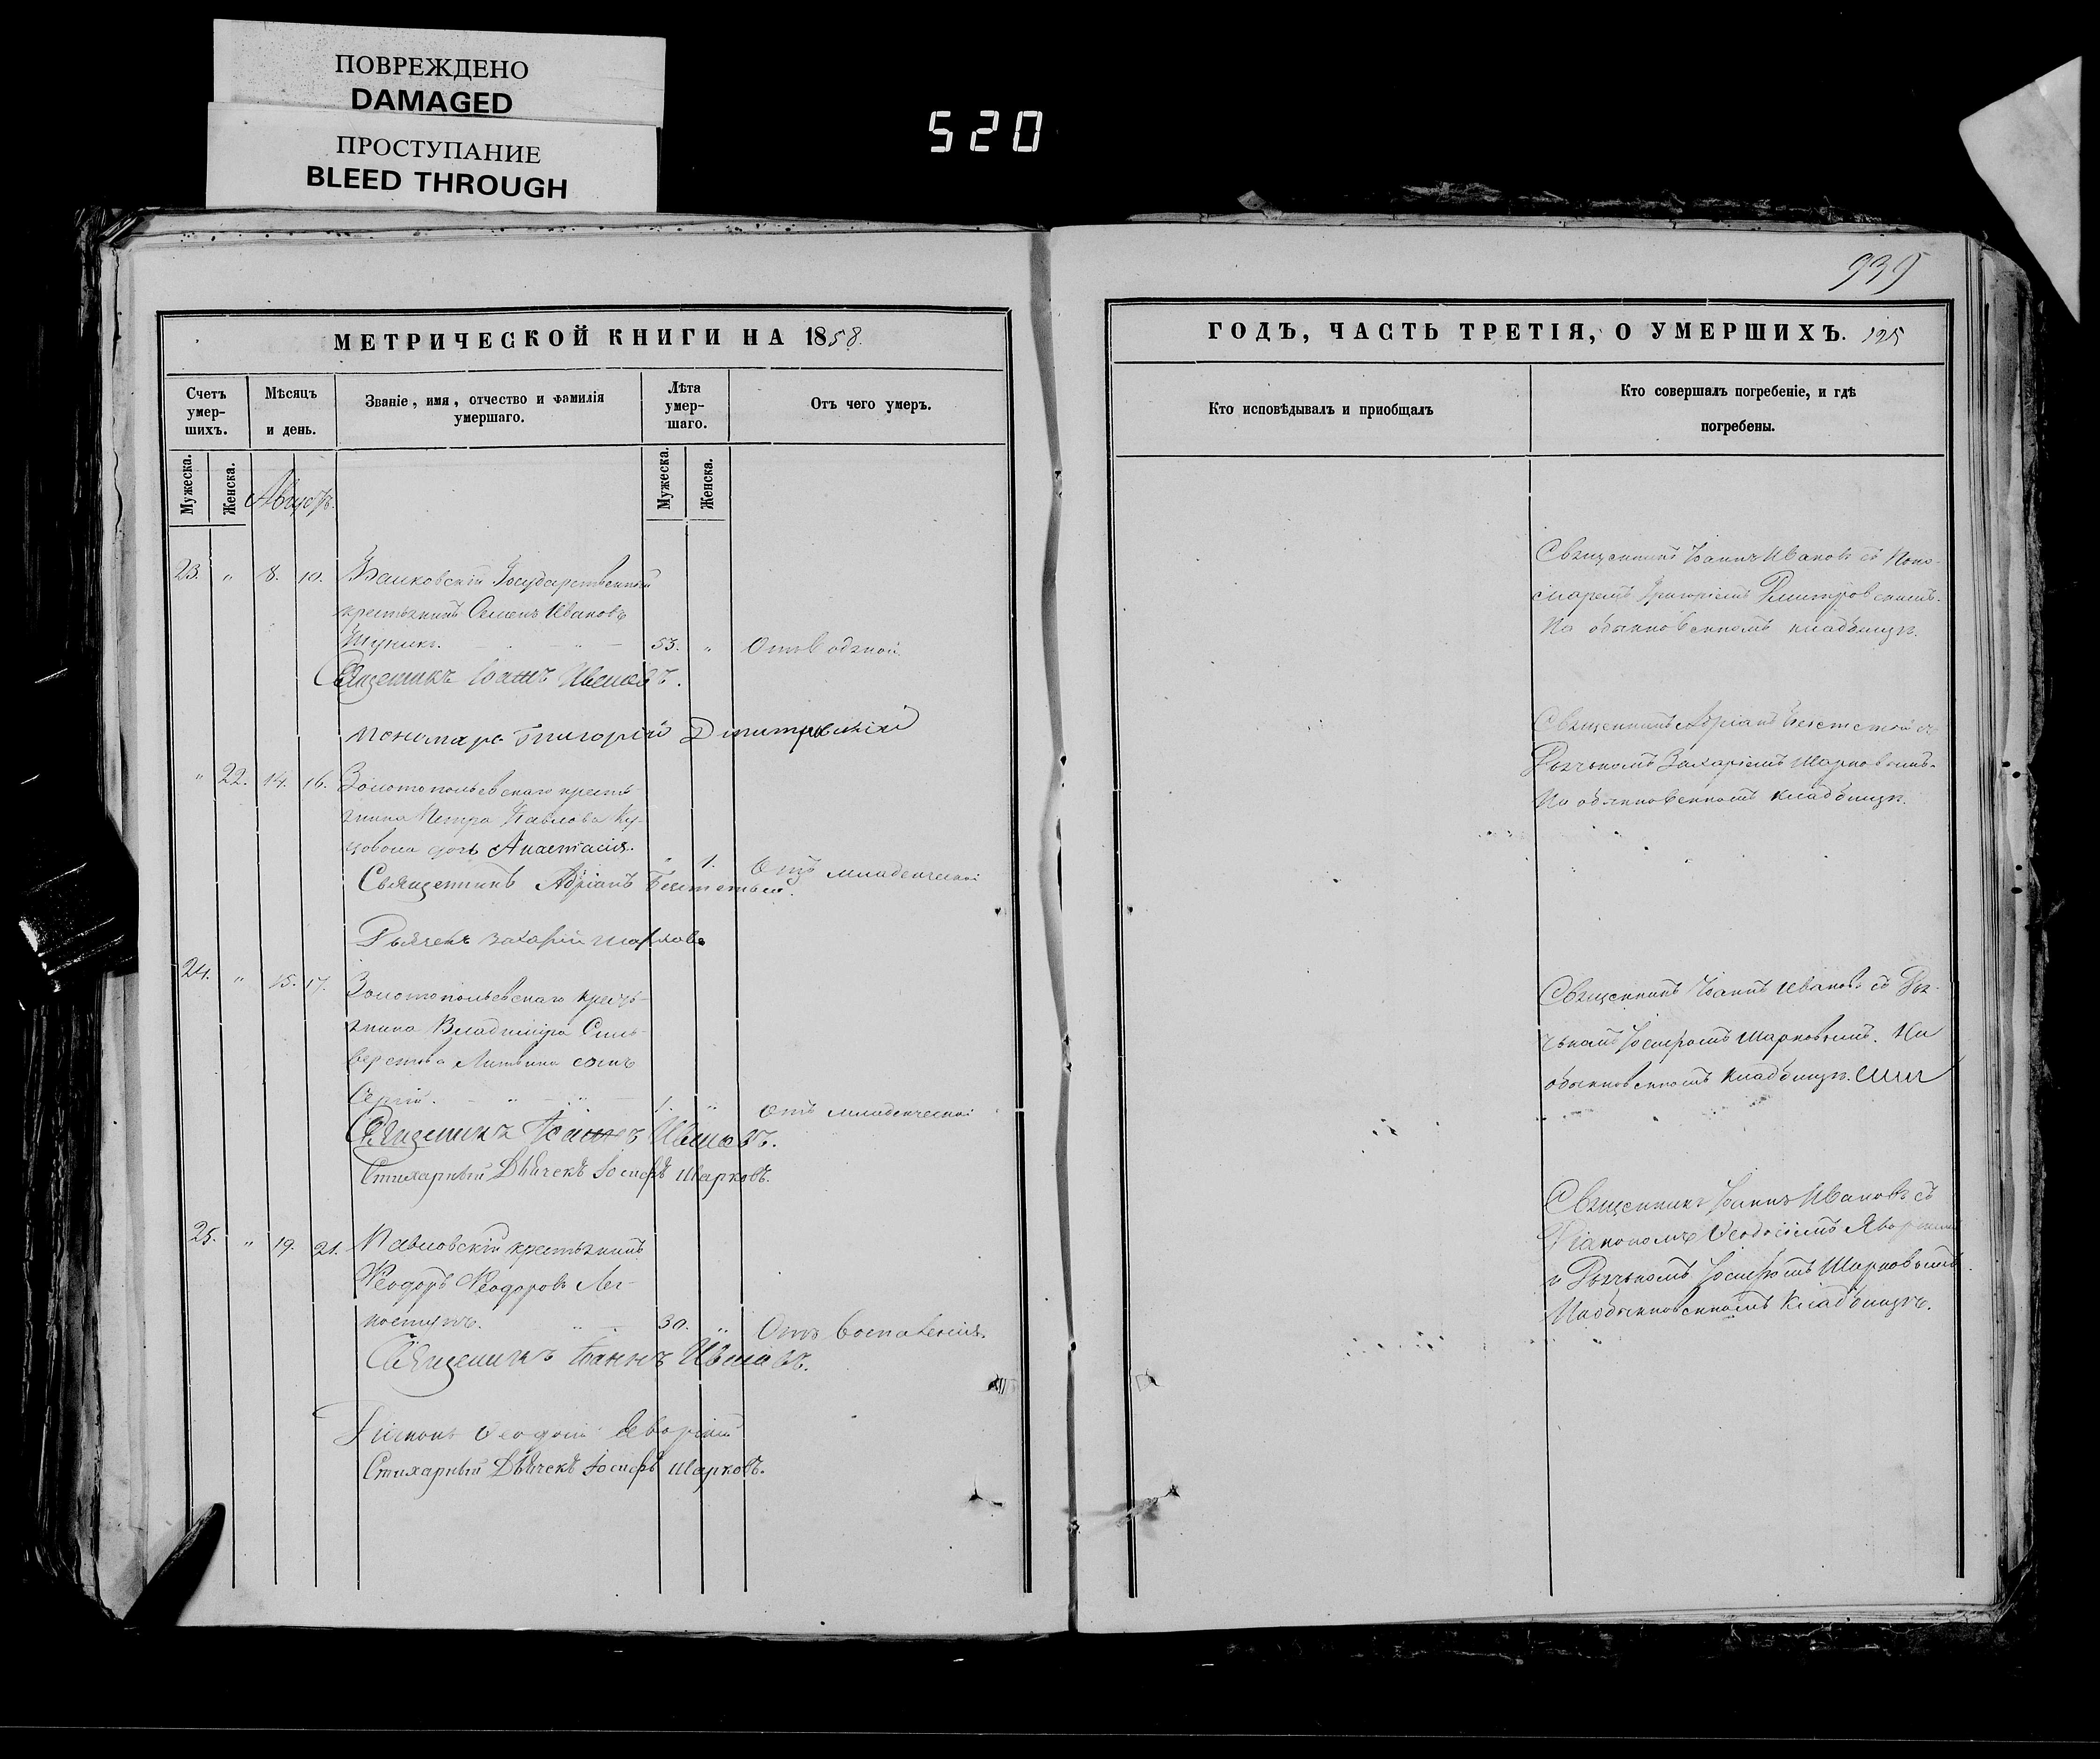 ПОВРЕЖДЕНО
DAMAGED
ПРОСТУПАНИЕ
BLEED THROUGH
520
МЕТРИЧЕСКОЙ КНИГИ НА 1858.
Счетъ умер-шихъ.
Мѣсяцъ и день.
Званіе, имя, отчество и фамилія умершаго.
Лѣта умер-шаго.
Отъ чего умеръ.
Мужеска.
Женска.
Мужеска.
Женска.
23. " 8. 10. Государственный
крестьянинъ Семенъ Ивановъ
53. " Отъ водяной.
Священникъ Іоаннъ Ивановъ.
Пономарь Григорій Димитровскій
" 22. 14. 16. Золотопольевскаго кресть
янина Петра Павлова Ку-
дочь Анастасія. " 1. Отъ младенческой
Священникъ Адріанъ
Дьячекъ Захарій Шарковъ
24. " 15. 17. Золотопольевскаго кресть-
янина Владиміра Силь-
верстова Литвина сынъ
Сергій. 1. " Отъ младенческой
Священникъ Іоаннъ Ивановъ.
Стихарный Дьячекъ Іосифъ Шарковъ.
25. " 19. 21. Павловскій крестьянинъ
Ѳеодоръ Ѳеодоровъ Лег-
30. " Отъ воспаленія.
Священникъ Іоаннъ Ивановъ.
Діаконъ Ѳеодосій Яворскій
Стихарный Дьячекъ Іосифъ Шарковъ.
939
ГОДЪ, ЧАСТЬ ТРЕТІЯ, О УМЕРШИХЪ. 125
Кто исповѣдывалъ и приобщалъ
Кто совершалъ погребеніе, и гдѣ
погребены.
Священникъ Іоаннъ Ивановъ съ Поно-
маремъ Григоріемъ Димитровскимъ.
На обыкновенномъ кладбищѣ.
Священникъ Адріанъ съ
Дьячкомъ Захаріемъ Шарковымъ.
На обыкновенномъ кладбищѣ.
Священникъ Іоаннъ Ивановъ съ Дья-
чкомъ Іосифомъ Шарковымъ. На
обыкновенномъ кладбищѣ.
Священникъ Іоаннъ Ивановъ съ
Діакономъ Ѳеодосіемъ Яворскимъ
и Дьячкомъ Іосифомъ Шарковымъ.
На обыкновенномъ кладбищѣ.